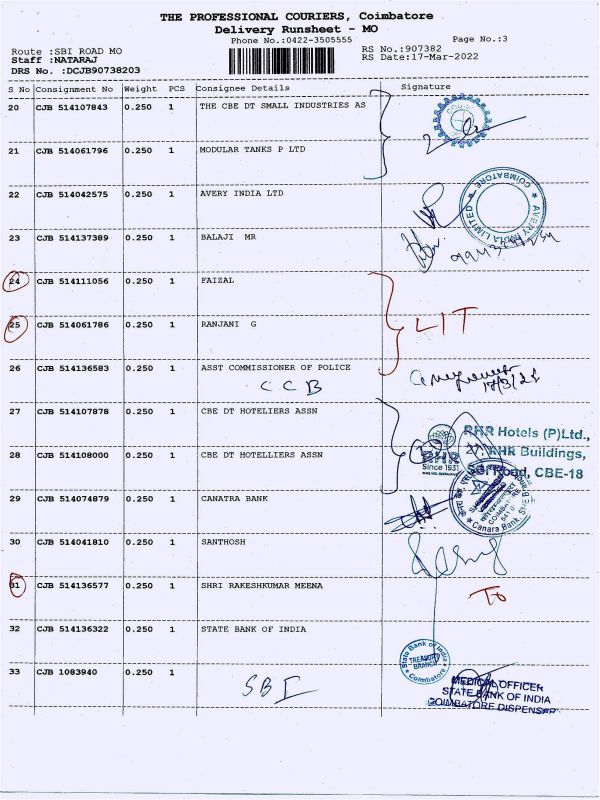 THE PROFESSIONAL COURIERS, Coimbatore
Delivery Runsheet - MO
Phone No.:0422-3505555
Page No.:3
Route :SBI ROAD MO
RS No.:907382
Staff :NATARAJ
RS Date:17-Mar-2022
DRS No. :DCJB90738203
S No Consignment No Weight PCS Consignee Details Signature
20 CJB 514107843 0.250 1 THE CBE DT SMALL INDUSTRIES AS
21 CJB 514061796 0.250 1 MODULAR TANKS P LTD
22 CJB 514042575 0.250 1 AVERY INDIA LTD
COIMBATORE
AVERY INDIA LIMITED
23 CJB 514137389 0.250 1 BALAJI MR
24 CJB 514111056 0.250 1 FAIZAL
25 CJB 514061786 0.250 1 RANJANI G
LIT
26 CJB 514136583 0.250 1 ASST COMMISSIONER OF POLICE
CCB
17/3/22
27 CJB 514107878 0.250 1 CBE DT HOTELIERS ASSN
RHR Hotels (P)Ltd.,
27, RHR Buildings,
Road, CBE-18
RHR
Since 1931
28 CJB 514108000 0.250 1 CBE DT HOTELLIERS ASSN
29 CJB 514074879 0.250 1 CANATRA BANK
Canara Bank
30 CJB 514041810 0.250 1 SANTHOSH
31 CJB 514136577 0.250 1 SHRI RAKESHKUMAR MEENA
To
32 CJB 514136322 0.250 1 STATE BANK OF INDIA
State Bank of India
TREASURY
BRANCH
Coimbatore
33 CJB 1083940 0.250 1
SBI
MEDICAL OFFICER
STATE BANK OF INDIA
COIMBATORE DISPENSARY